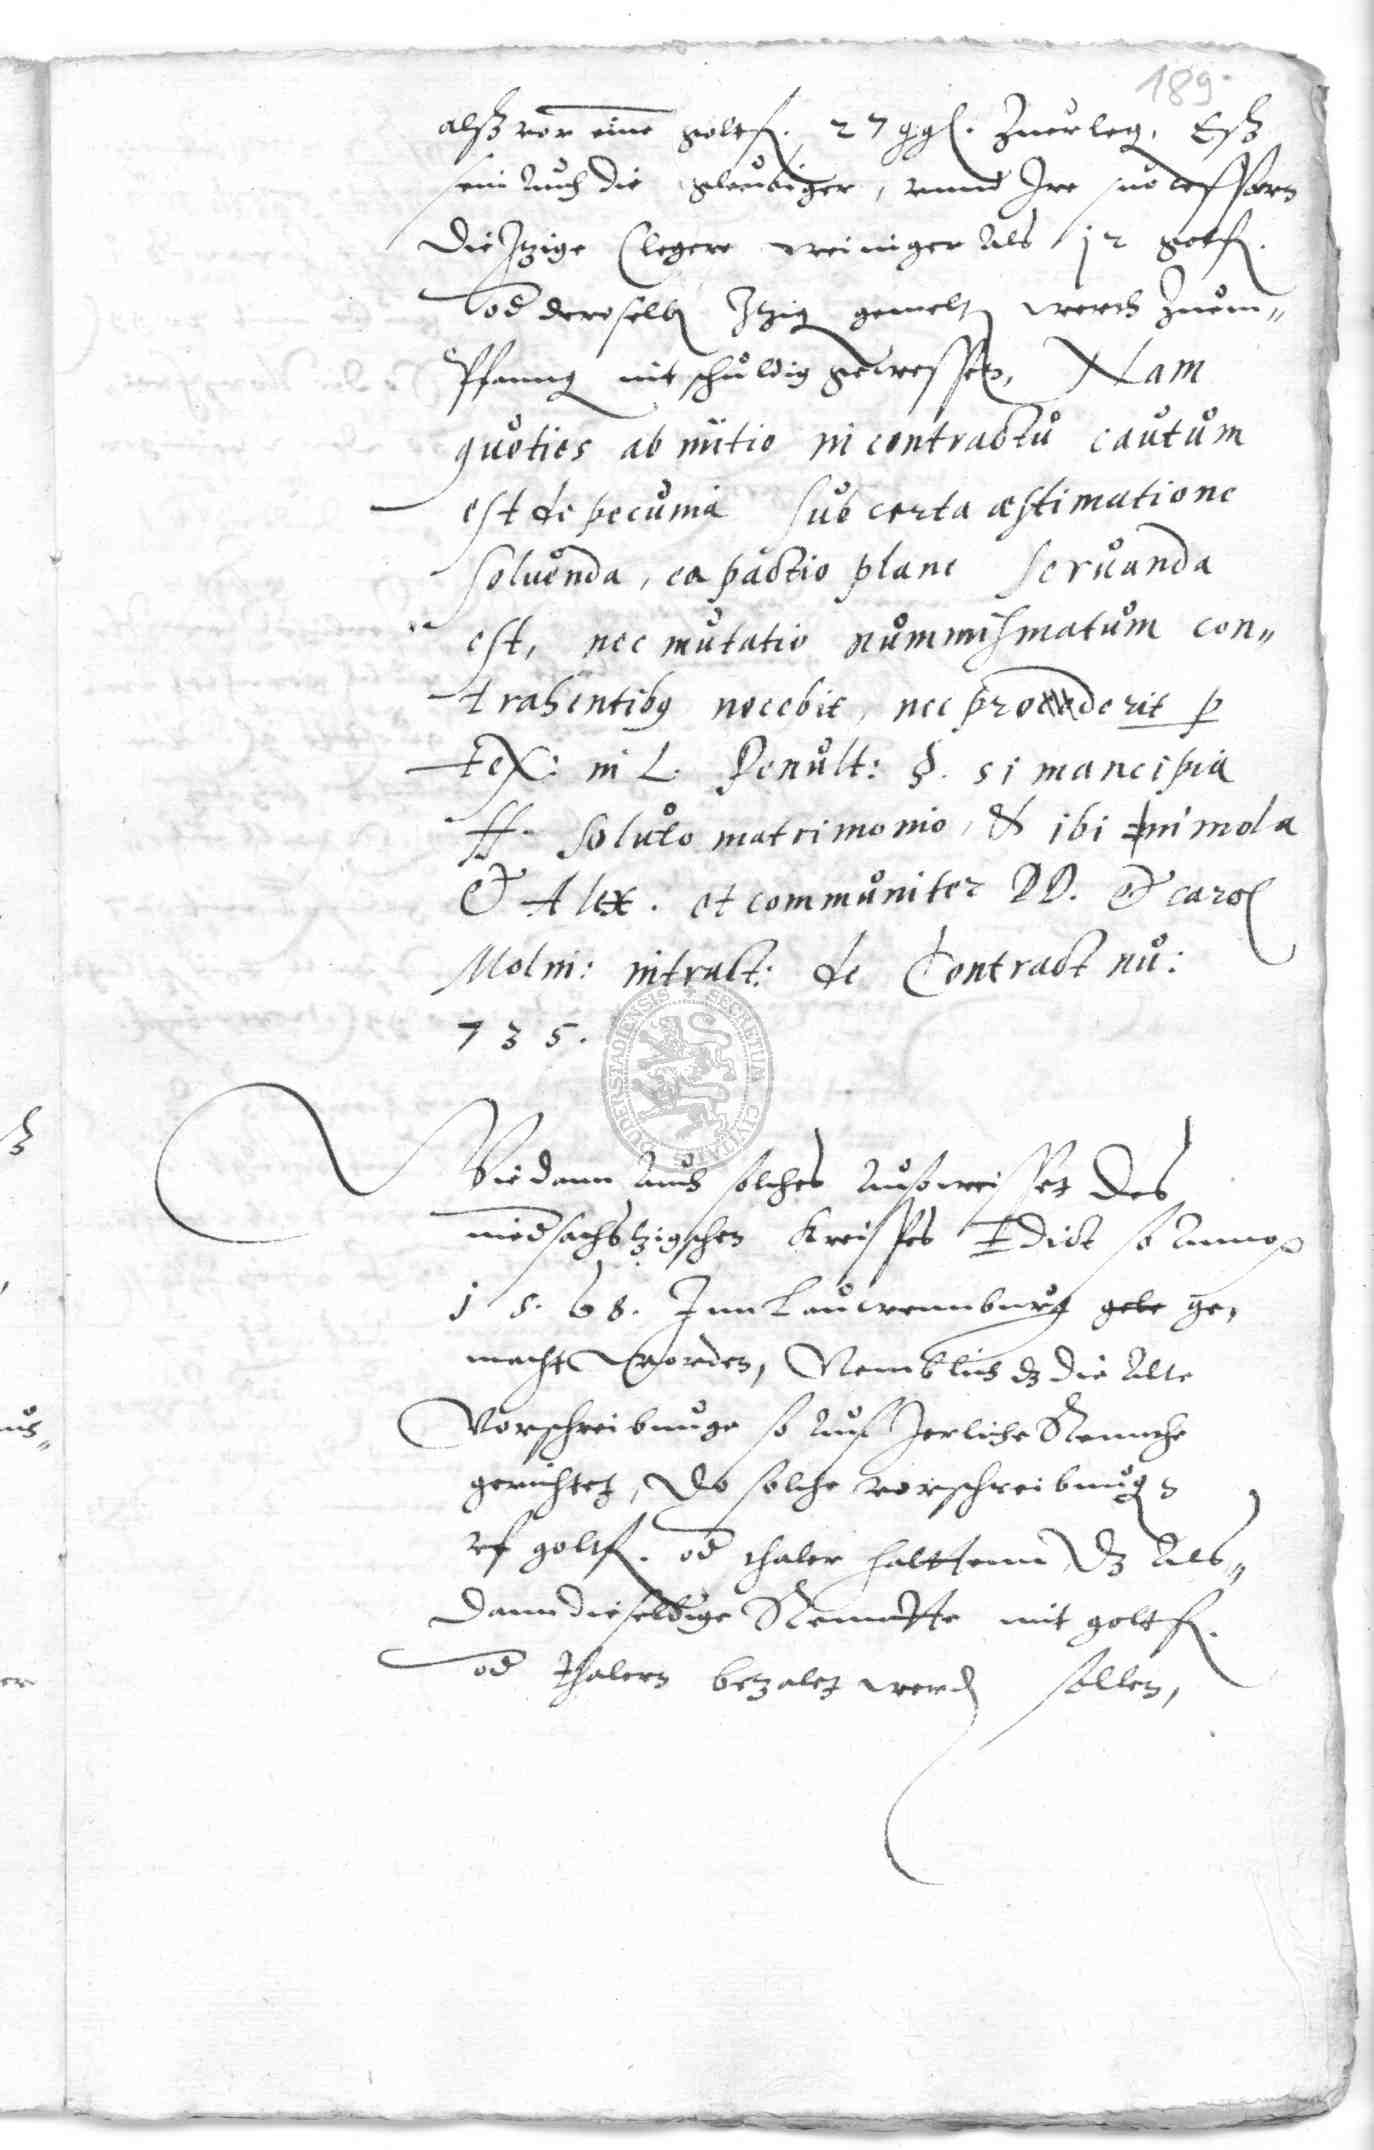 189.
alß vor eine goltfl. 27 ggl. Zuerleg. Eß
sein Auch die gleubiger, vnnd Ire successorn
die Itzige Clegere weiniger Als 12 goltfl.
od deroselb Itzig gemelt werth Zuem„
Pfanng nit schuldig gewessen, Nam
quoties ab initio in contractu cautum
est de pecunia sub certa æstimatione
soluenda, ea pactio plane seruanda
est, nec mutatio nummismatum con„
trahentibq nocebit, nec proderit p
tex: in L. Penult: §. si mancipia
ff. soluto matrimonio, & ibi imola
& Alex. et communiter DD. & carol
Molin: in tract: de Contract nu:
735.
Wie dann Auch solches Außweisset des
niedsachsitzischen Kreisses Edict so Anno
1568. Inn Lauwennburg ge„
macht worden, Nemblich dz die Alte
Vorschreibunge so Auf Jerliche Rennthe
gerichtet, Do solche vorschreibung
vf goltfl. od thaler halttenn, Dz Als„
dann dieselbige Rennthe mit goltfl.
od thalern betzalet werd sollen,
SECRETUM CIVITATIS DUDERSTADENSIS